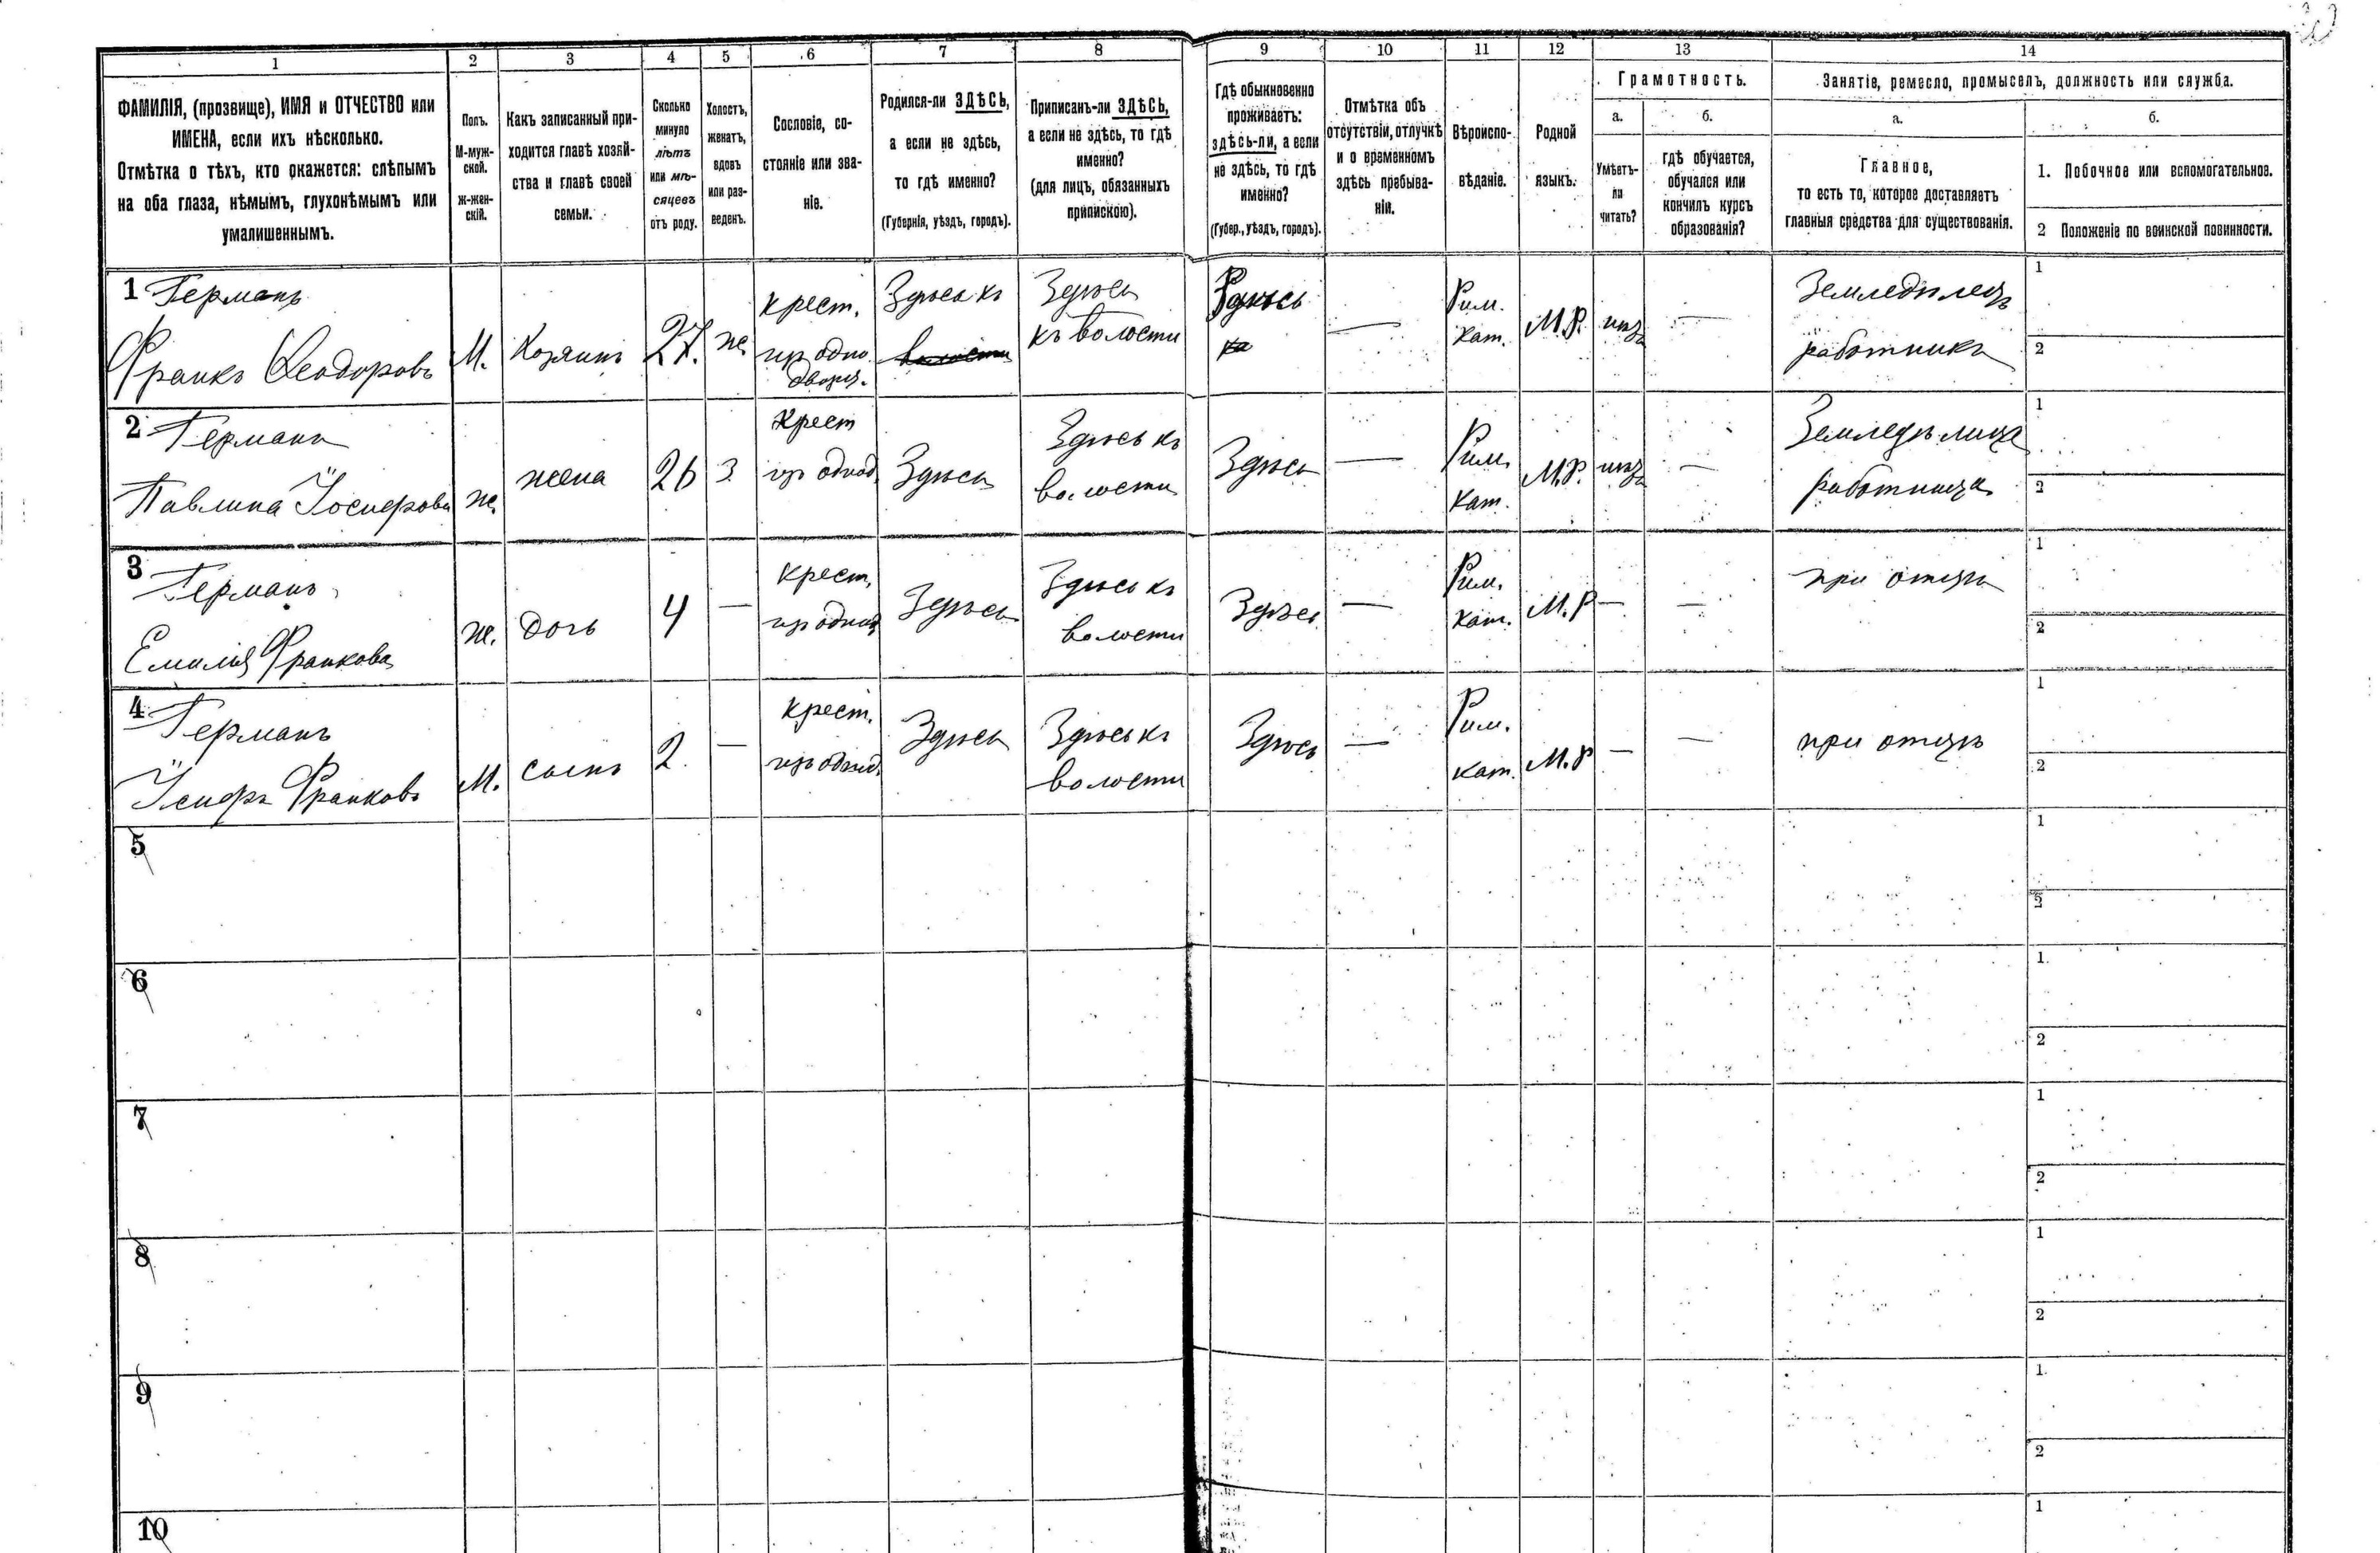 1
2
3
4
5
6
7
8
9
10
11
12
13
14
ФАМИЛІЯ, (прозвище), ИМЯ и ОТЧЕСТВО или
ИМЕНА, если ихъ нѣсколько.
Отмѣтка о тѣхъ, кто окажется: слѣпымъ
на оба глаза, нѣмымъ, глухонѣмымъ или
умалишеннымъ.
Полъ.
М-муж-
ской.
ж-жен-
скій.
Какъ записанный при-
ходится главѣ хозяй-
ства и главѣ своей
семьи.
Сколько
минуло
лѣтъ
или мѣ-
сяцевъ
отъ роду.
Холостъ,
женатъ,
вдовъ
или раз-
веденъ.
Сословіе, со-
стояніе или зва-
ніе.
Родился-ли ЗДѢСЬ,
а если не здѣсь,
то гдѣ именно?
(Губернія, уѣздъ, городъ).
Приписанъ-ли ЗДѢСЬ,
а если не здѣсь, то гдѣ
именно?
(для лицъ, обязанныхъ
припискою).
Гдѣ обыкновенно
проживаетъ:
здѣсь-ли, а если
не здѣсь, то гдѣ
именно?
(Губер., уѣздъ, городъ).
Отмѣтка объ
отсутствіи, отлучкѣ
и о временномъ
здѣсь пребыва-
ніи.
Вѣроиспо-
вѣданіе.
Родной
языкъ.
Грамотность.
а.
Умѣетъ-
ли
читать?
б.
гдѣ обучается,
обучался или
кончилъ курсъ
образованія?
Занятіе, ремесло, промыселъ, должность или служба.
а.
Главное,
то есть то, которое доставляетъ
главныя средства для существованія.
б.
1. Побочное или вспомогательное.
2 Положеніе по воинской повинности.
1 Германъ
Франкъ Ѳеодоровъ
М.
Хозяинъ
27.
ж.
крест.
изъ одно
дворц.
Здѣсь къ
волости
Здѣсь
къ волости
Здѣсь
ка
—
Рим.
Кат.
М.Р.
—
Земледѣлецъ
работникъ
1
2
2 Германъ
Павлина Іосифова
ж.
жена
26
З
Крест
изъ однод.
Здѣсь
Здѣсь къ
волости
Здѣсь
—
Рим.
Кат.
М.Р.
—
Земледѣлица
работница
1
2
3 Германъ
Емилія Франкова
ж.
дочь
4
—
крест.
изъ однод
Здѣсь
Здѣсь къ
волости
Здѣсь
—
Рим.
Кат.
М.Р
—
—
при отцѣ
1
2
4 Германъ
Іосифъ Франковъ
М.
сынъ
2.
—
крест.
изъ однод.
Здѣсь
Здѣсь къ
волости
Здѣсь
—
Рим.
кат.
М.Р
—
—
при отцѣ
1
2
5
1
2
6
1.
2
7
1
2
8
1
2
9
1.
2
10
1